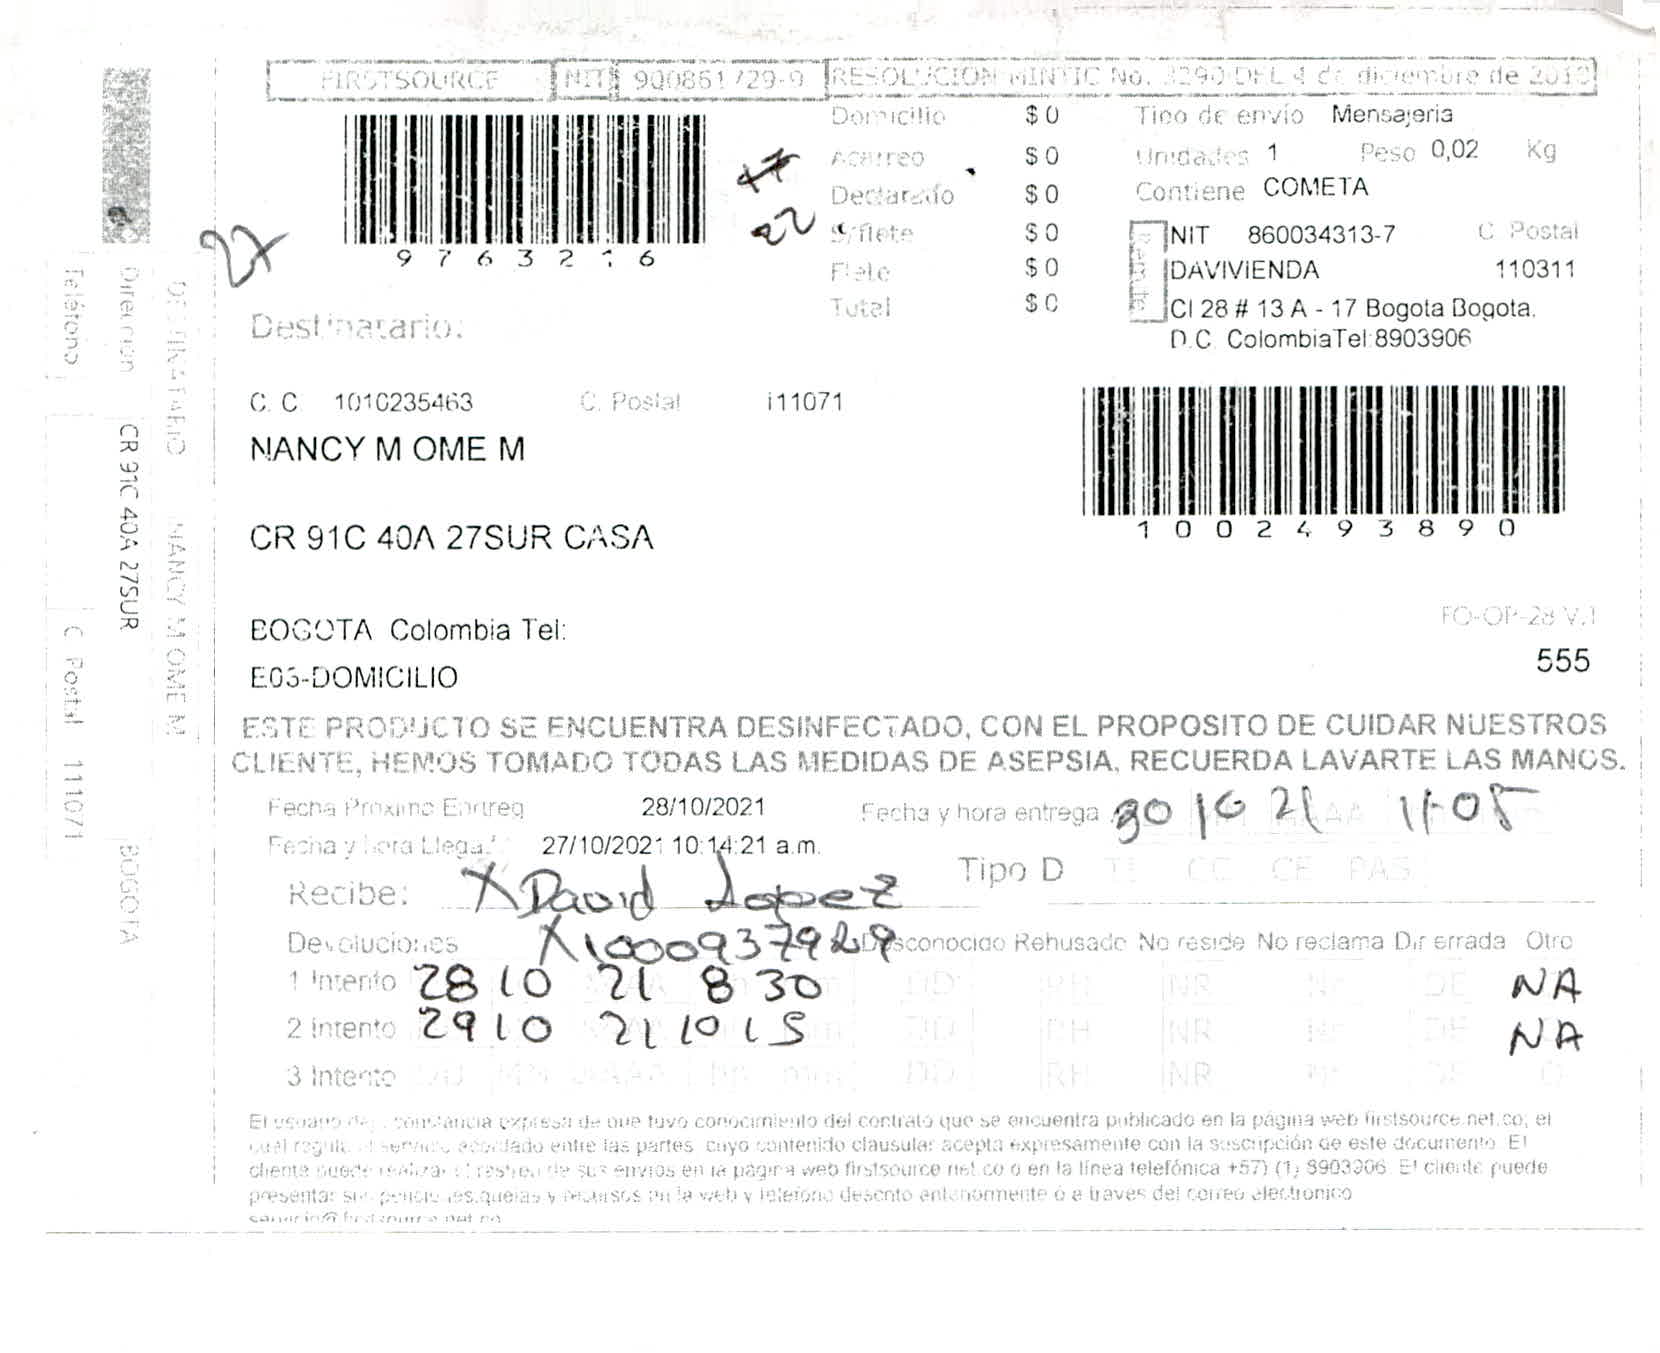 FIRSTSOURCE NIT 900861729-9 RESOLUCION MINTIC No. 3290 DEL 4 de diciembre de
Domicilio $ 0 Tipo de envío Mensajeria
Acarreo $ 0 Unidades 1 Peso 0,02 Kg
Declarado $ 0 Contiene COMETA
S/flete $ 0 NIT 860034313-7 C Postal
Flete $ 0 DAVIVIENDA 110311
Total $ 0 Cl 28 # 13 A - 17 Bogota Bogota.
D.C. ColombiaTel:8903906
22
27
9763216
Destinatario:
C. C 1010235463 C. Postal 111071
NANCY M OME M
1002493890
CR 91C 40A 27SUR CASA
BOGOTA Colombia Tel:
FO-OP-28 V.1
555
E03-DOMICILIO
ESTE PRODUCTO SE ENCUENTRA DESINFECTADO, CON EL PROPOSITO DE CUIDAR NUESTROS
CLIENTE, HEMOS TOMADO TODAS LAS MEDIDAS DE ASEPSIA. RECUERDA LAVARTE LAS MANOS.
Fecha Proximo Entreg 28/10/2021 Fecha y hora entrega 30 10 21 11:05
Fecha y hora Llega 27/10/2021 10:14:21 a.m.
Tipo D TI CC CE PAS
Recibe: X David Lopez
Devoluciones X1000937929 Desconocido Rehusado No reside No reclama Dir errada Otro
1 Intento 28 10 21 8 30 DD RH NR Nr DE NA
2 Intento 29 10 21 10 15 DD RH NR Nr DE NA
3 Intento DD MM AAAA hh mm DD RH NR Nr DE O
El usuario deja constancia expresa de que tuvo conocimiento del contrato que se encuentra publicado en la página web firstsource.net.co; el
cual regula el servicio acordado entre las partes cuyo contenido clausular acepta expresamente con la suscripción de este documento. El
cliente puede realizar el rastreo de sus envios en la página web firstsource net co o en la línea telefónica +57) (1) 8903906 El cliente puede
presentar sus peticiones,quejas y recursos en la web y telefono descrito anteriormente o a traves del correo electronico
servicio@firstsource.net.co
DESTINATARIO NANCY M OME M
Direccion CR 91C 40A 27SUR BOGOTA
Teléfono C Postal 111071